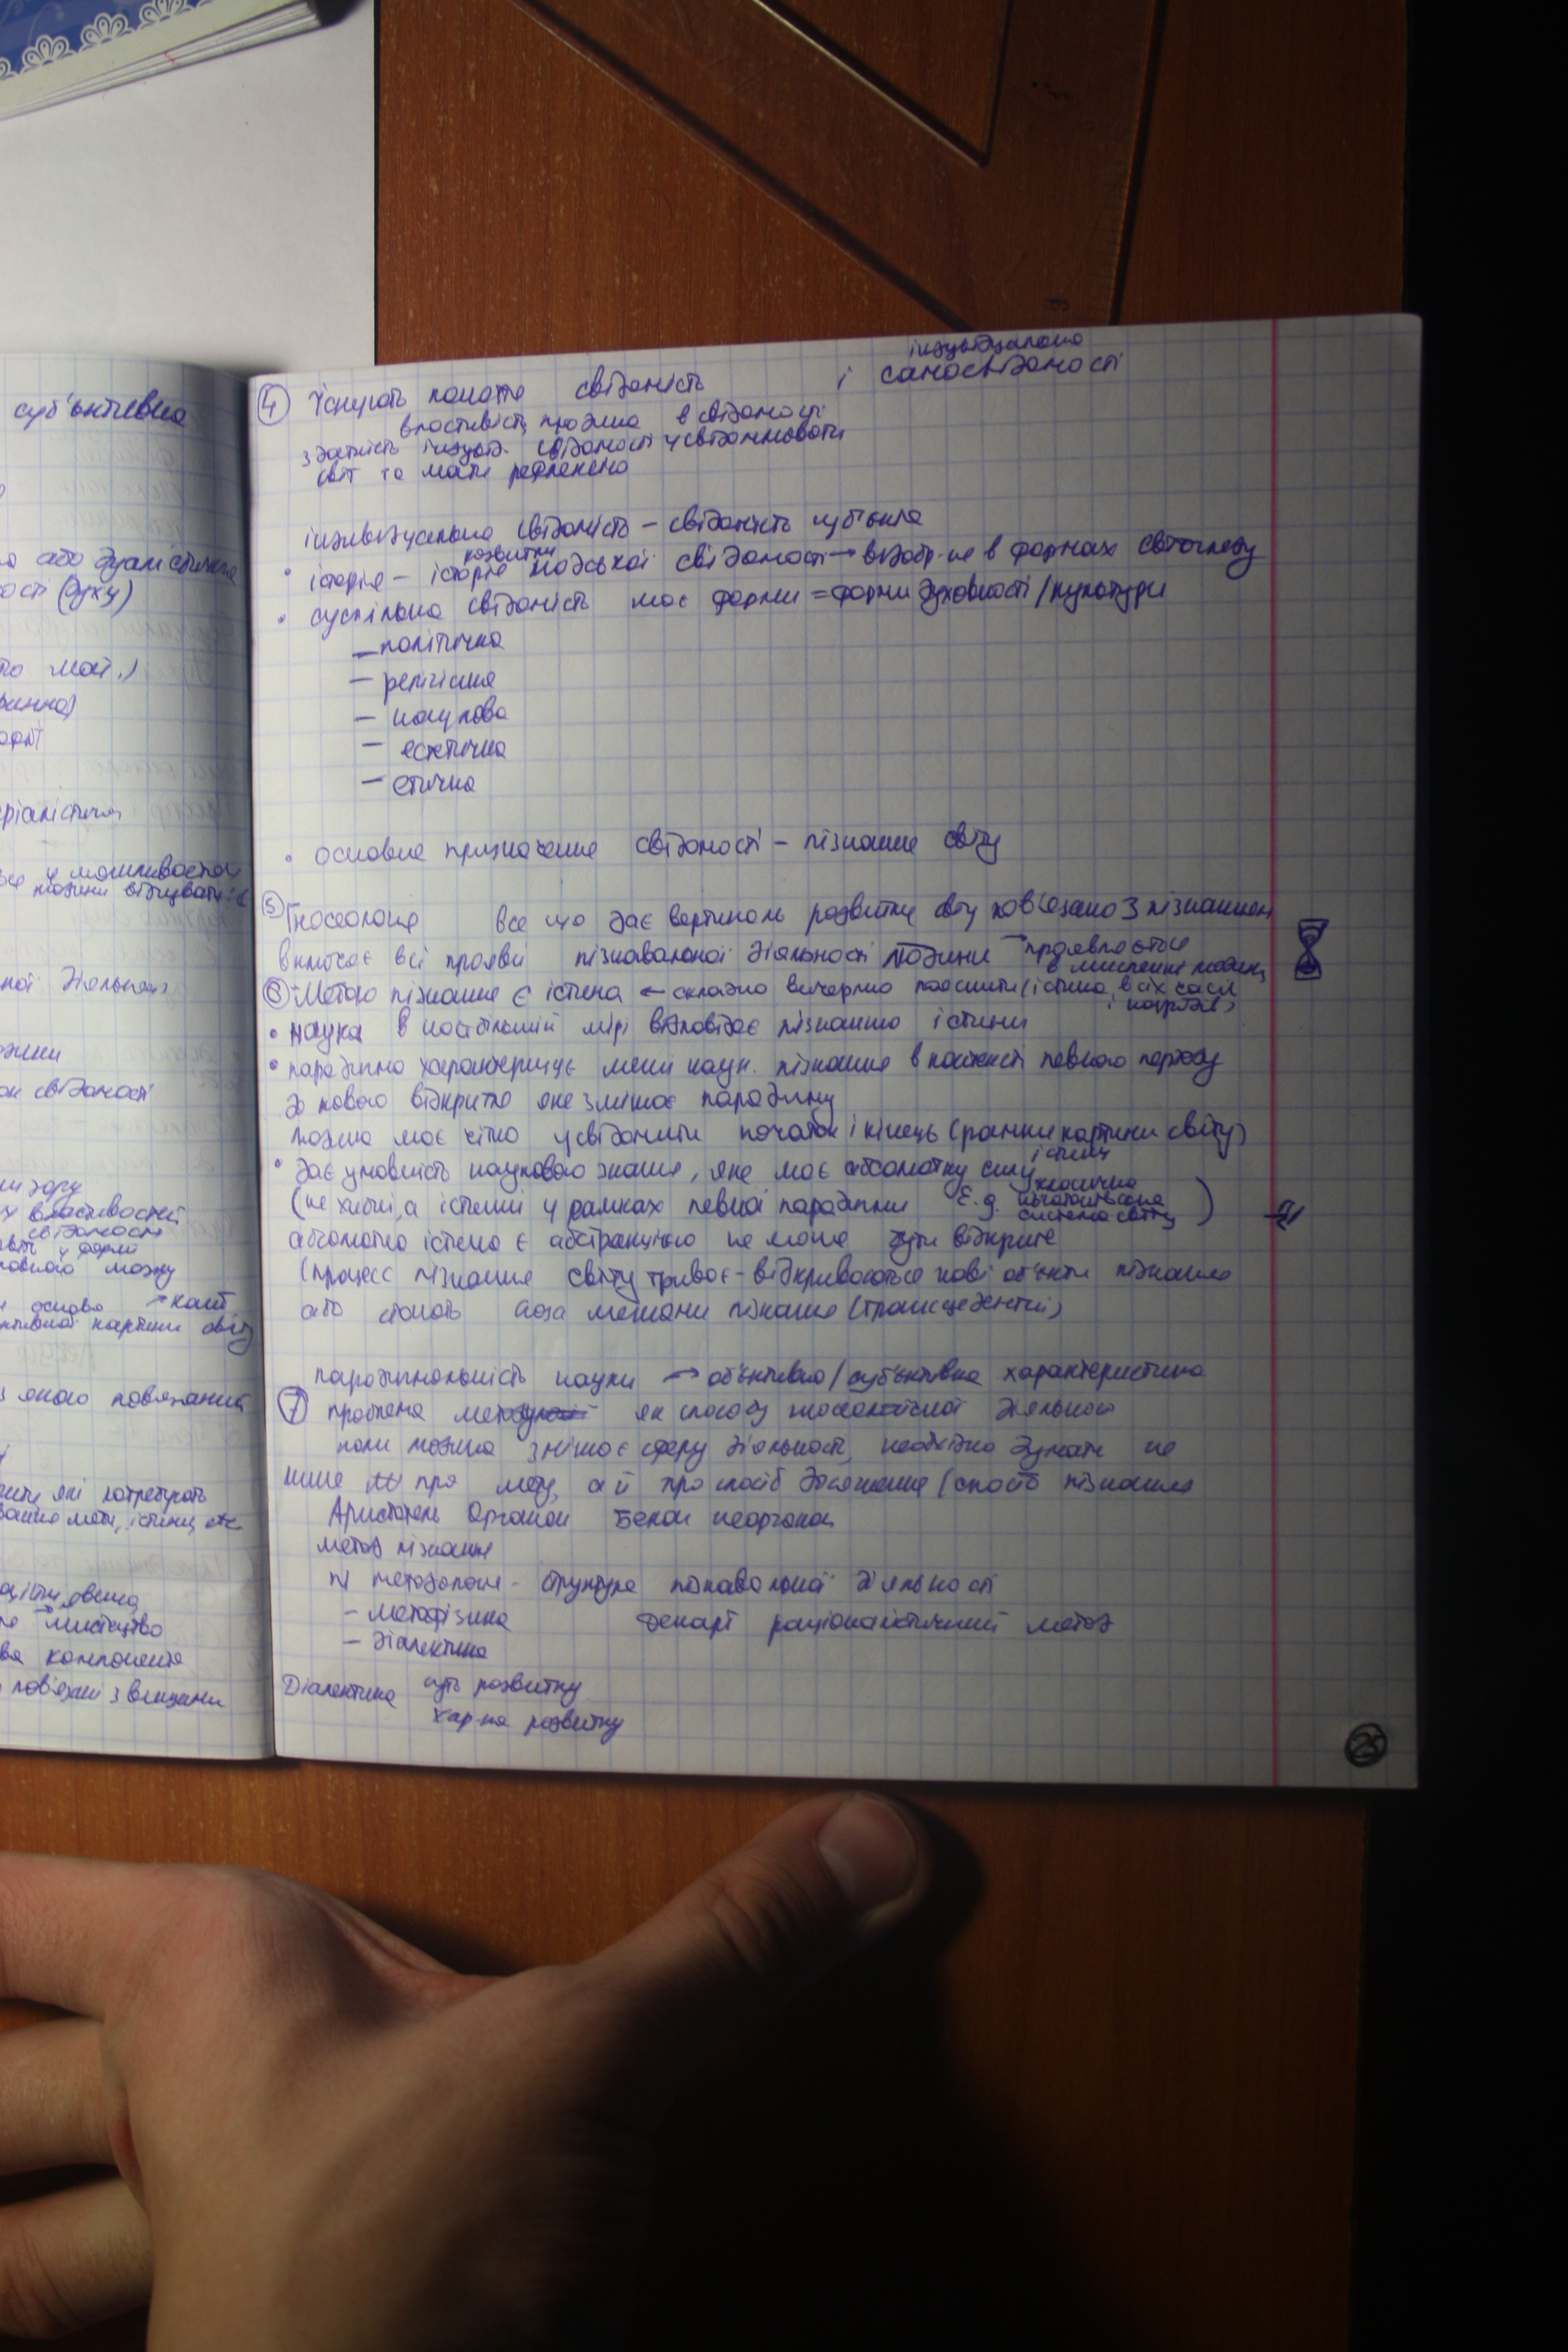 суб'єктивна
або дуалістична
ості (духу)
у можливостях
людини відчувати
ної діяльн.
свідомості
властивостей
свідомості
у формі
мозку
основа → конт.
картини світу
з якого пов'язаний
які потребують
істини, etc
явища
→ мистецтво
компонента
пов'язані з вищими
④ Існують поняття свідомість і індивідуальна самосвідомості
властивість людина в свідомості
здатність індивід. свідомості усвідомлювати
світ та мати рефлексію
індивідуальна свідомість – свідомість суб'єкта
• історія – історія розвитку людської свідомості → відобр-ня в формах світогляду
• суспільна свідомість має форми = форми духовності / культури
– політична
– релігійна
– наукова
– естетична
– етична
• основне призначення свідомості – пізнання світу
⑤ Гносеологія все що дає вертикаль розвитку світу пов'язано з пізнанням
включає всі прояви пізнавальної діяльності людини → проявляється
в мисленні людини
⑥ Метою пізнання є істина ← складно вичерпно пояснити (істина всіх часів
і народів)
• наука в найбільшій мірі відповідає пізнанню істини
• парадигма характеризує межі наук. пізнання в контексті певного періоду
до нового відкриття яке змінює парадигму
людина має чітко усвідомити початок і кінець (рамки картини світу)
• дає умовність наукового знання, яке має абсолютну силу істини
(не хибні, а істинні у рамках певної парадигми E.g. класична
ньютонівська
система світу)
абсолютна істина є абстракцією не може бути відкрита
(процесс пізнання світу триває – відкриваються нові об'єкти пізнання
або стоять поза межами пізнання (трансцедентні)
парадигмальність науки → об'єктивна / суб'єктивна характеристика
⑦ проблема методу як способу гносеологічної діяльності
коли людина змінює сферу діяльності, необхідно думати не
лише про мету, а й про спосіб досягнення / спосіб пізнання
Аристотель Органон Бекон неорганон
метод пізнання
методологія - структура пізнавальної діяльності
– метафізика Декарт раціоналістичний метод
– діалектика
Діалектика суть розвитку
хар-ка розвитку
25